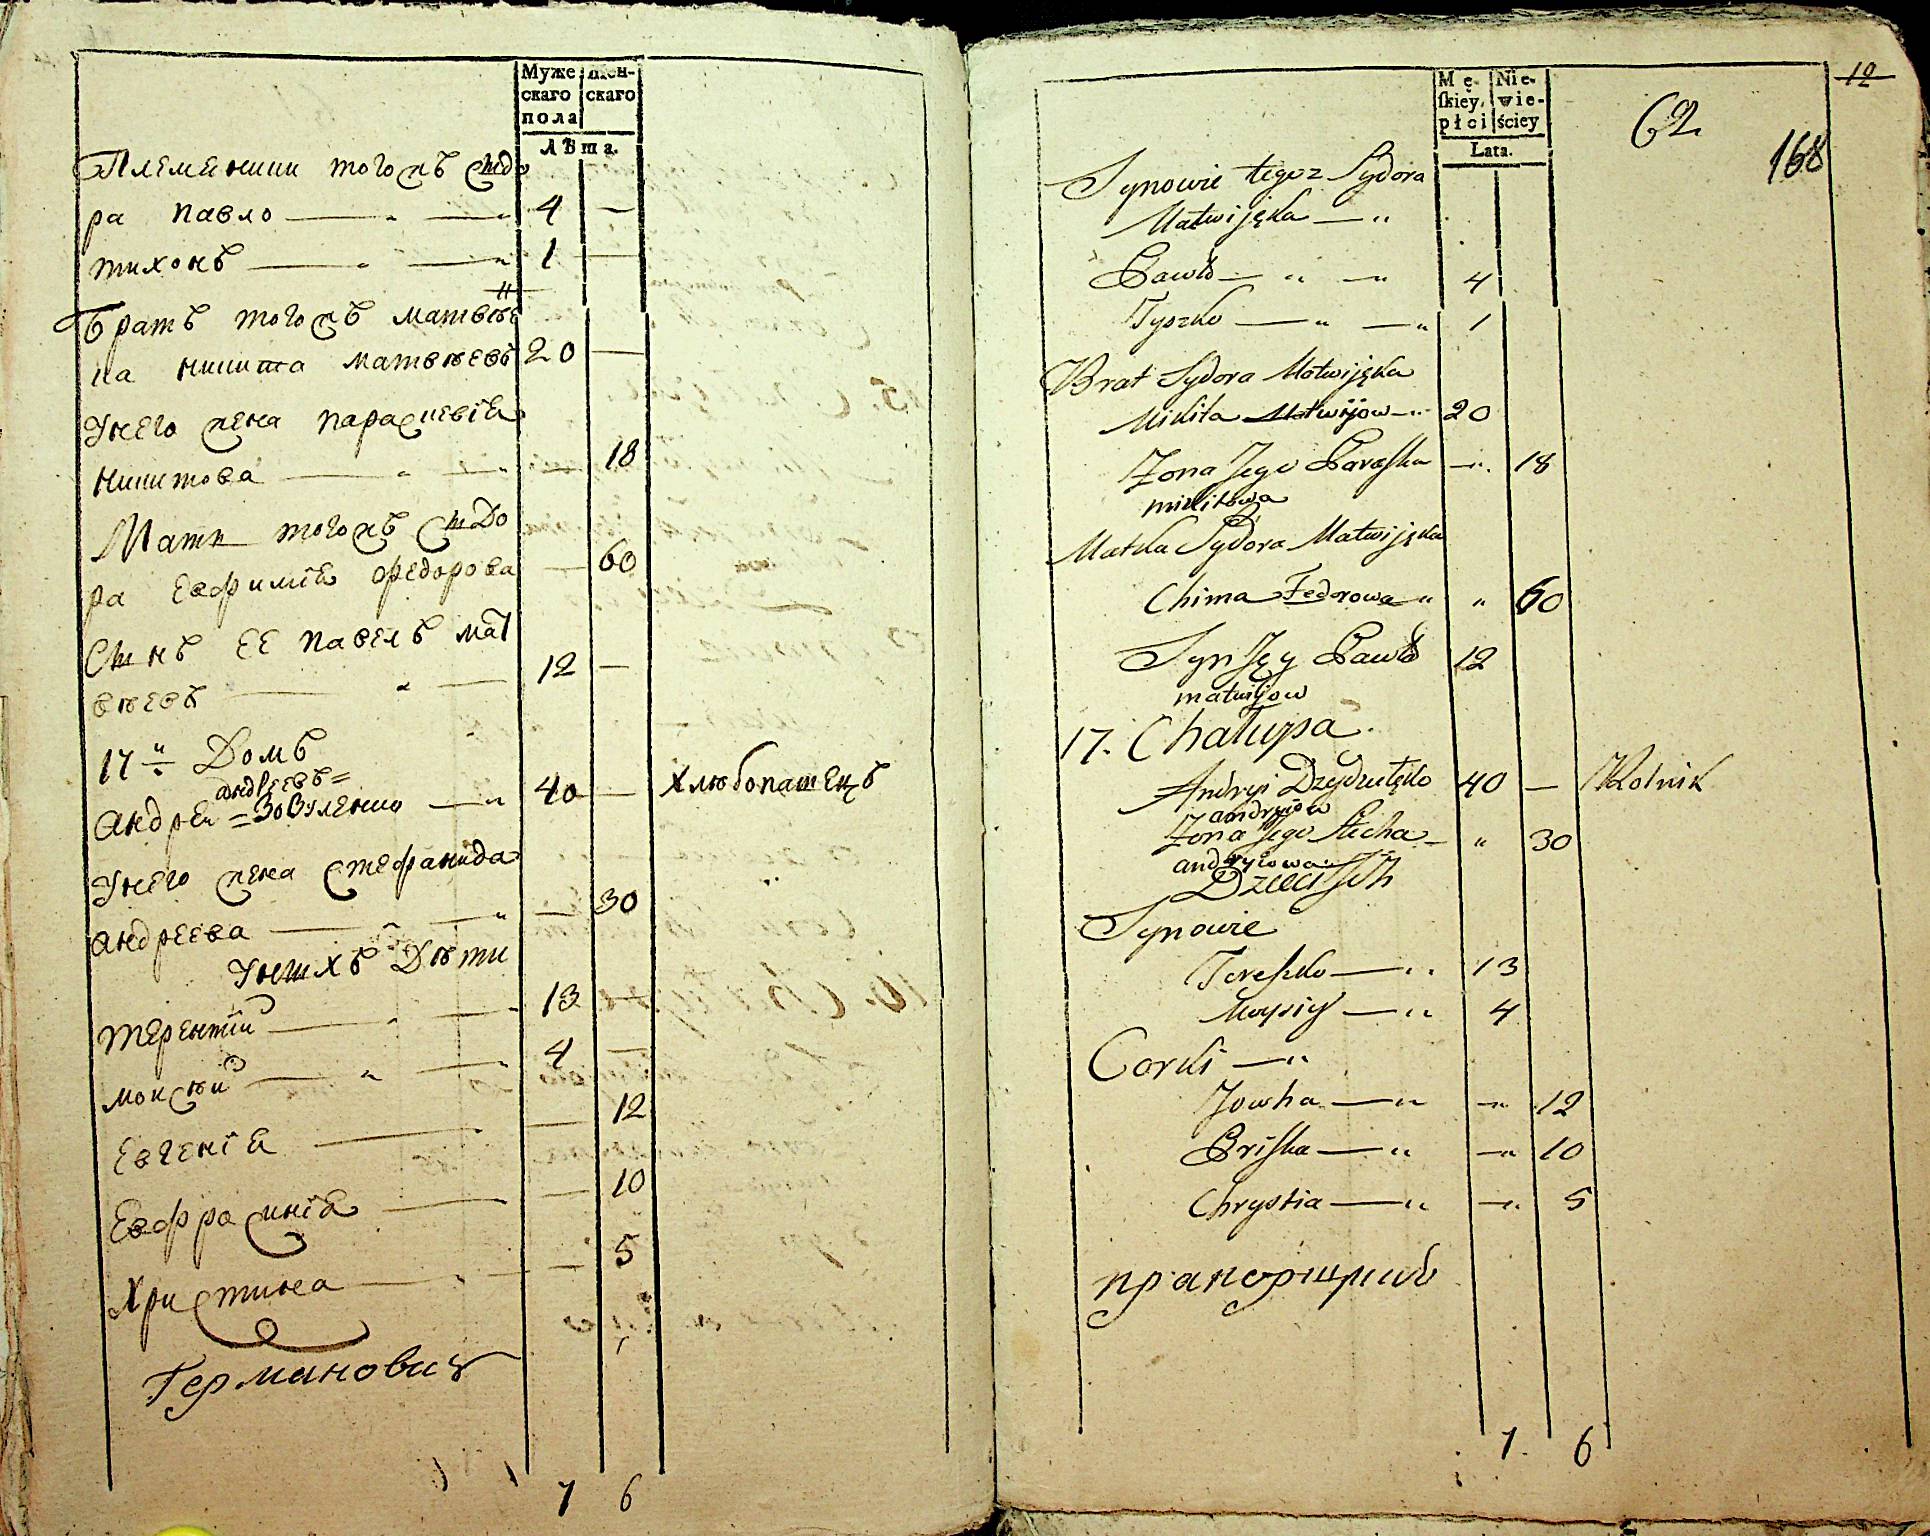 Муже
скаго
пола
жен-
скаго
Лѣта.
Племенники тогожъ Сидо
ра Павло — " — " 4 —
тихонъ — " — " 1 —
братъ тогожъ матвѣе
ка никита матвѣевъ 20 —
Унего жена парасцевiа
никитова — " — " — 18
Мати тогожъ Сидо
ра Евфимiа федорова — 60
Сынъ ЕЕ павелъ мат
вѣевъ — " — 12 —
17й Домъ
андреевъ=
андрей =Зозуленко — " 40 — хлѣбопашецъ
Унего жена Стефанида
андреева — " — " — 30
Унихъ Дѣти
терентiй — " — 13 —
моисѣй — " — " 4 —
Евгенiа — — 12
Евфросинiа — — 10
христина — " — — 5
Германович
7 6
Mę-
skiey,
płci
Nie-
wie-
ściey
Lata.
12
62
168
Synowie tegoz Sydora
Matwijęka — "
Pawło — " — " 4
Tyszko — " — " 1
Brat Sydora Matwijęka
Mikita Matwijow — " 20
Zona Jego Paraska — " 18
mikitowa
Matka Sydora Matwijęka
Chima Fedorowa " " 60
Syn Jęy Pawło 12
matwijow
17. Chałupa.
Andryi Dzydzulęko 40 — Rolnik
andryiow
Zona Jego Stecha — " 30
andryiowa
Dzieci Jch
Synowie
Tereszko — " 13
Moysiy — " 4
Corki — "
Jowha — " — " 12
Priska — " — " 10
Chrystia — " — " 5
прапорщикъ
7 6